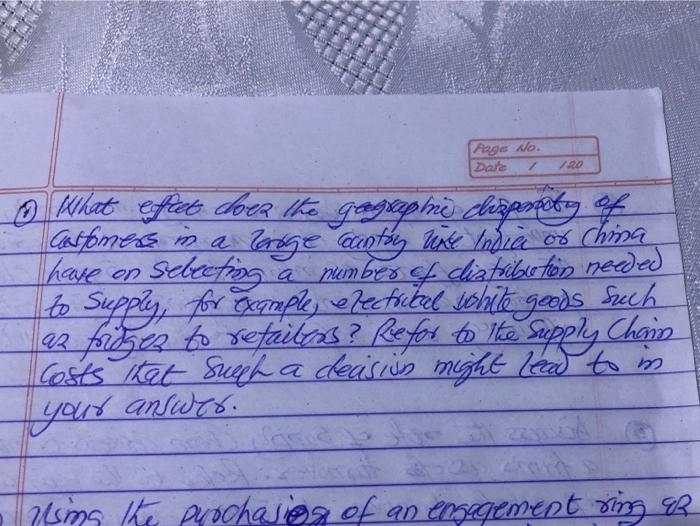 Page No.
Date / /20
① What effect does the geographic disparity of
Customers in a large Country like India or China
have on Selecting a number of distribution needed
to Supply, for example, electrical white goods Such
as fridges to retailers? Refer to the Supply Chain
Costs that Such a decision might lead to in
your answer.
Using the purchasing of an engagement ring as